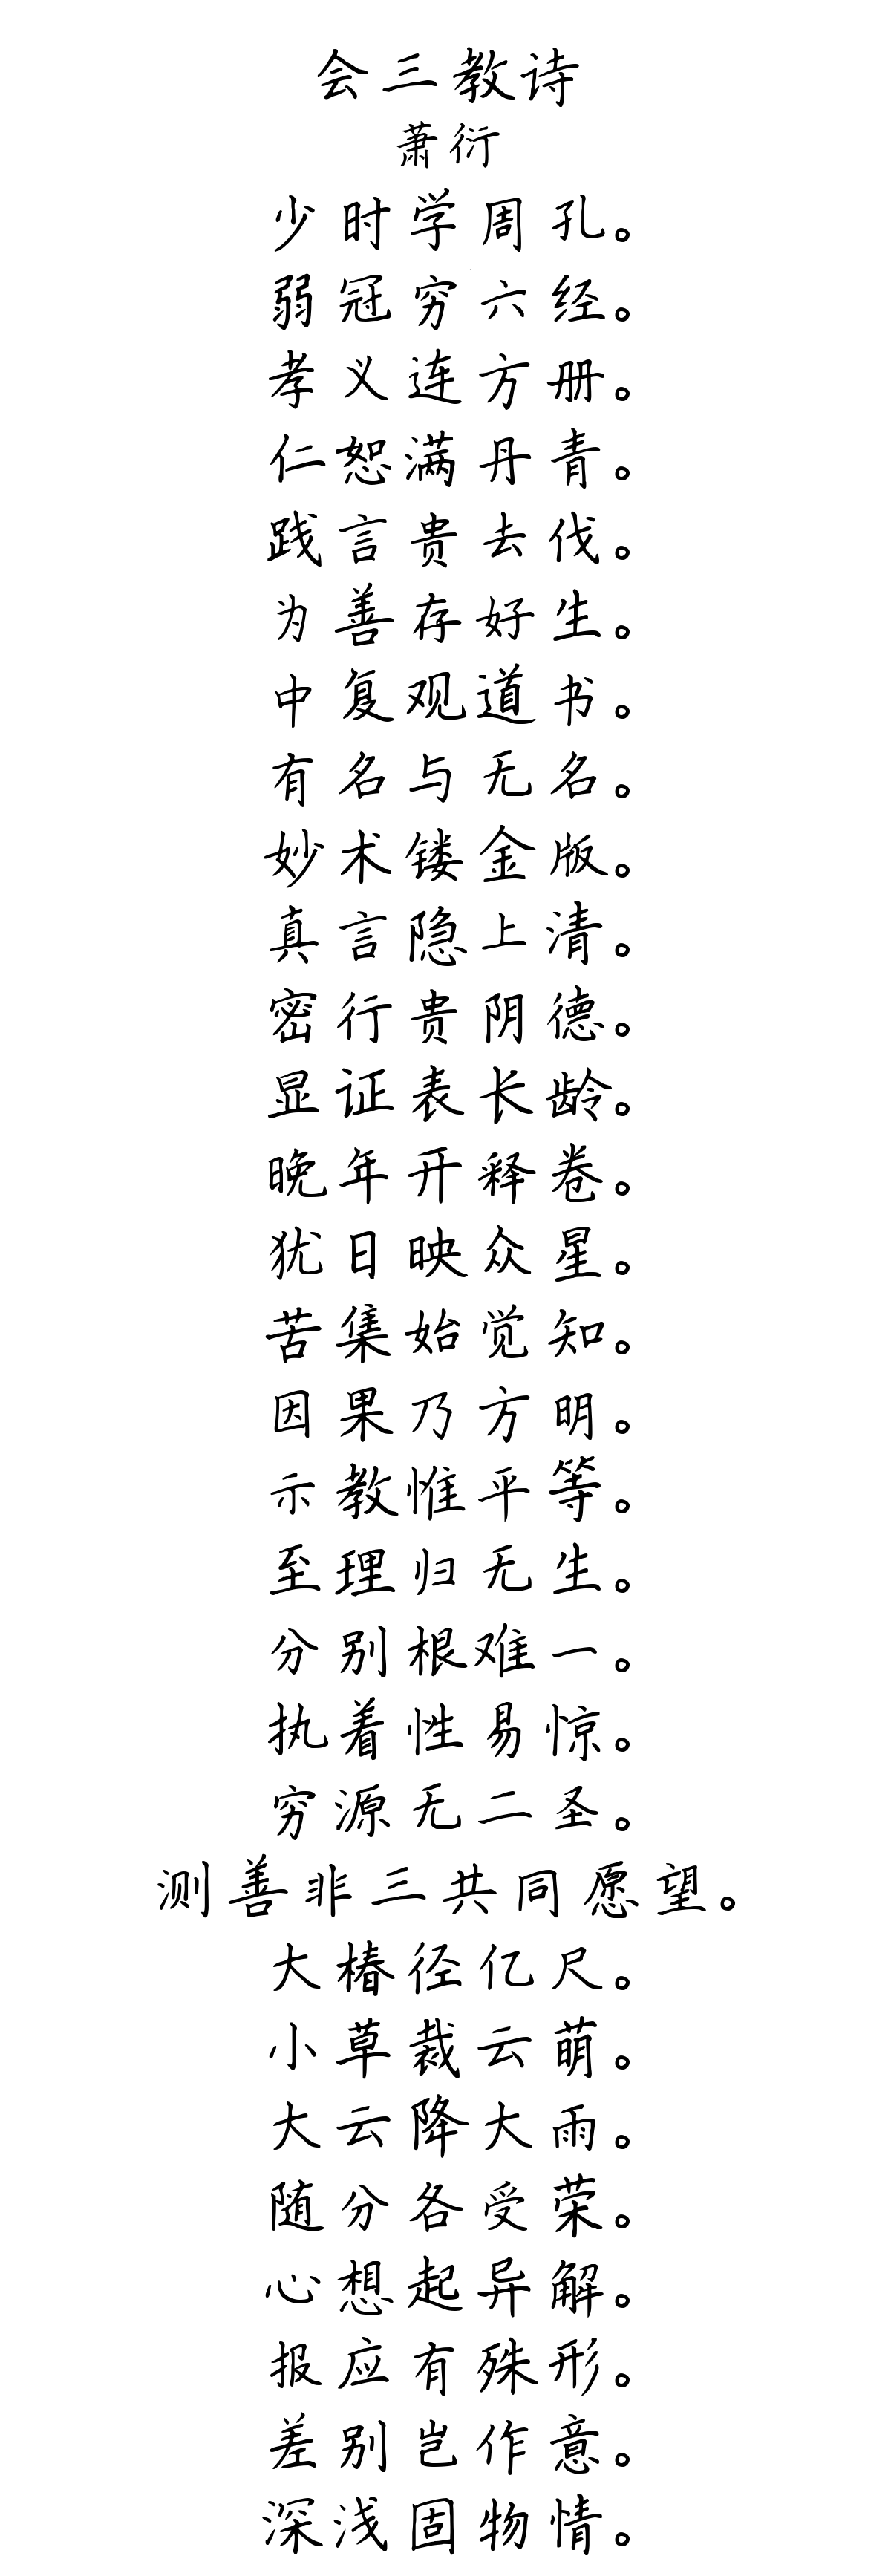 会三教诗
萧衍
少时学周孔。
弱冠穷六经。
孝义连方册。
仁恕满丹青。
践言贵去伐。
为善存好生。
中复观道书。
有名与无名。
妙术镂金版。
真言隐上清。
密行贵阴德。
显证表长龄。
晚年开释卷。
犹日映众星。
苦集始觉知。
因果乃方明。
示教惟平等。
至理归无生。
分别根难一。
执着性易惊。
穷源无二圣。
测善非三共同愿望。
大椿径亿尺。
小草裁云萌。
大云降大雨。
随分各受荣。
心想起异解。
报应有殊形。
差别岂作意。
深浅固物情。